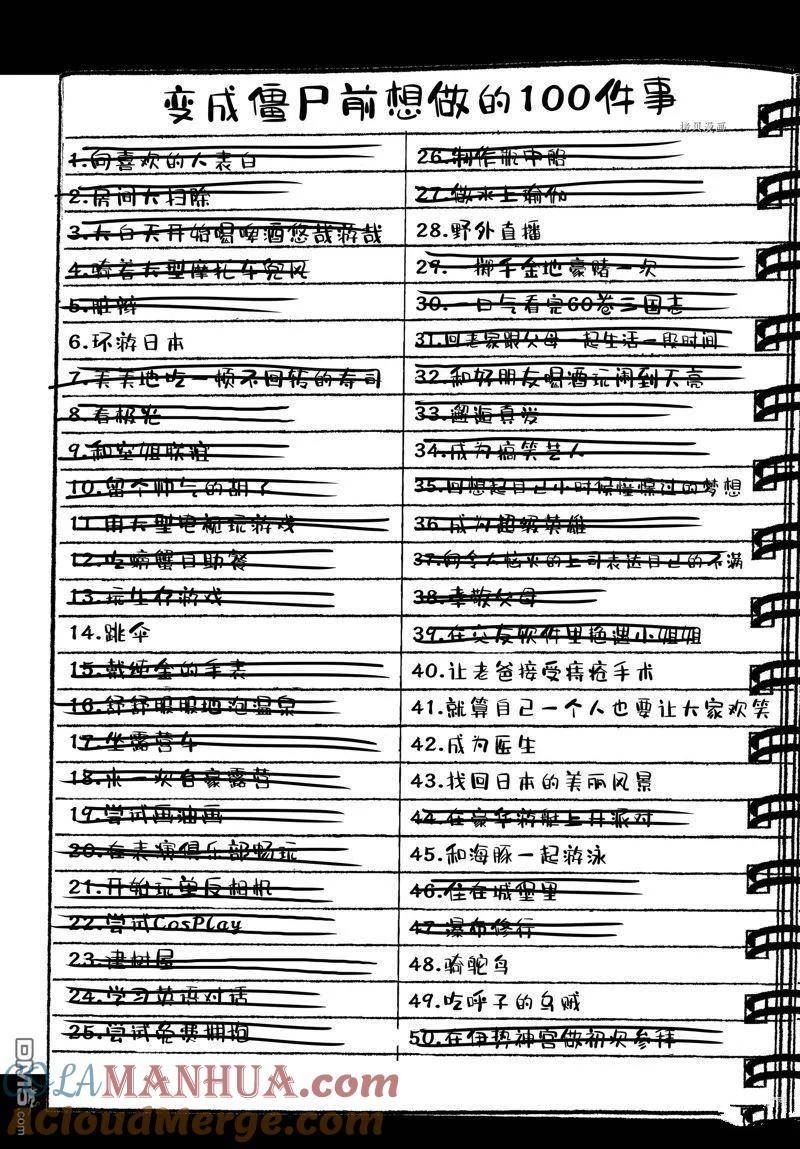 变成僵尸前想做的100件事
拷贝漫画
1.向喜欢的人表白
2.房间大扫除
3.大白天开始喝啤酒悠哉游哉
4.骑着大型摩托车兜风
5.脏辫
6.环游日本
7.美美地吃一顿不回转的寿司
8.看极光
9.和空姐联谊
10.留个帅气的胡子
11.用大型电视玩游戏
12.吃螃蟹自助餐
13.玩生存游戏
14.跳伞
15.戴纯金的手表
16.舒舒服服地泡温泉
17.坐露营车
18.来一次自豪露营
19.尝试画油画
20.在表演俱乐部畅玩
21.开始玩单反相机
22.尝试CosPlay
23.建树屋
24.学习英语对话
25.尝试免费拥抱
26.制作瓶中船
27.做水上瑜伽
28.野外直播
29.一掷千金地豪赌一次
30.一口气看完60卷三国志
31.回老家跟父母一起生活一段时间
32.和好朋友喝酒玩闹到天亮
33.邂逅真爱
34.成为搞笑艺人
35.回想起自己小时候憧憬过的梦想
36.成为超级英雄
37.向令人恼火的上司表达自己的不满
38.孝敬父母
39.在交友软件里艳遇小姐姐
40.让老爸接受痔疮手术
41.就算自己一个人也要让大家欢笑
42.成为医生
43.找回日本的美丽风景
44.在豪华游艇上开派对
45.和海豚一起游泳
46.住在城堡里
47.瀑布修行
48.骑鸵鸟
49.吃呼子的乌贼
50.在伊势神宫做初次参拜
COLAMANHUA.com
ACloudMerge.com
DM5.com